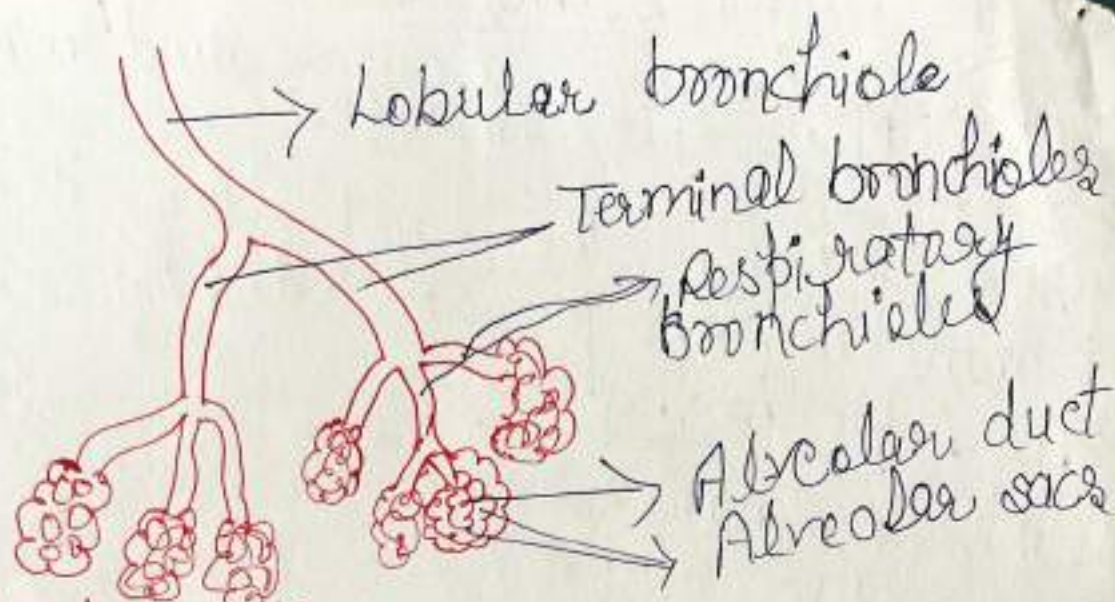 Lobular bronchiole
Terminal bronchioles
Respiratory
Bronchioles
Alveolar duct
Alveolar sacs